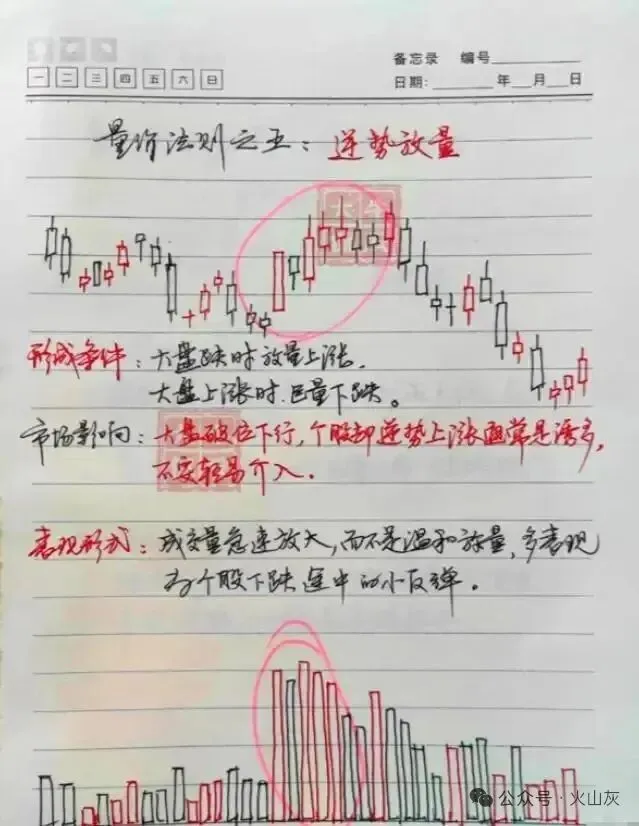 备忘录 编号
一 二 三 四 五 六 日
日期: 年 月 日
量价法则之五：逆势放量
形成条件：大盘跌时放量上涨，
大盘上涨时巨量下跌。
市场影响：大盘破位下行，个股却逆势上涨通常是诱多，
不要轻易介入。
表现形式：成交量急速放大，而不是温和放量，多表现
为个股下跌途中的小反弹。
公众号·火山灰